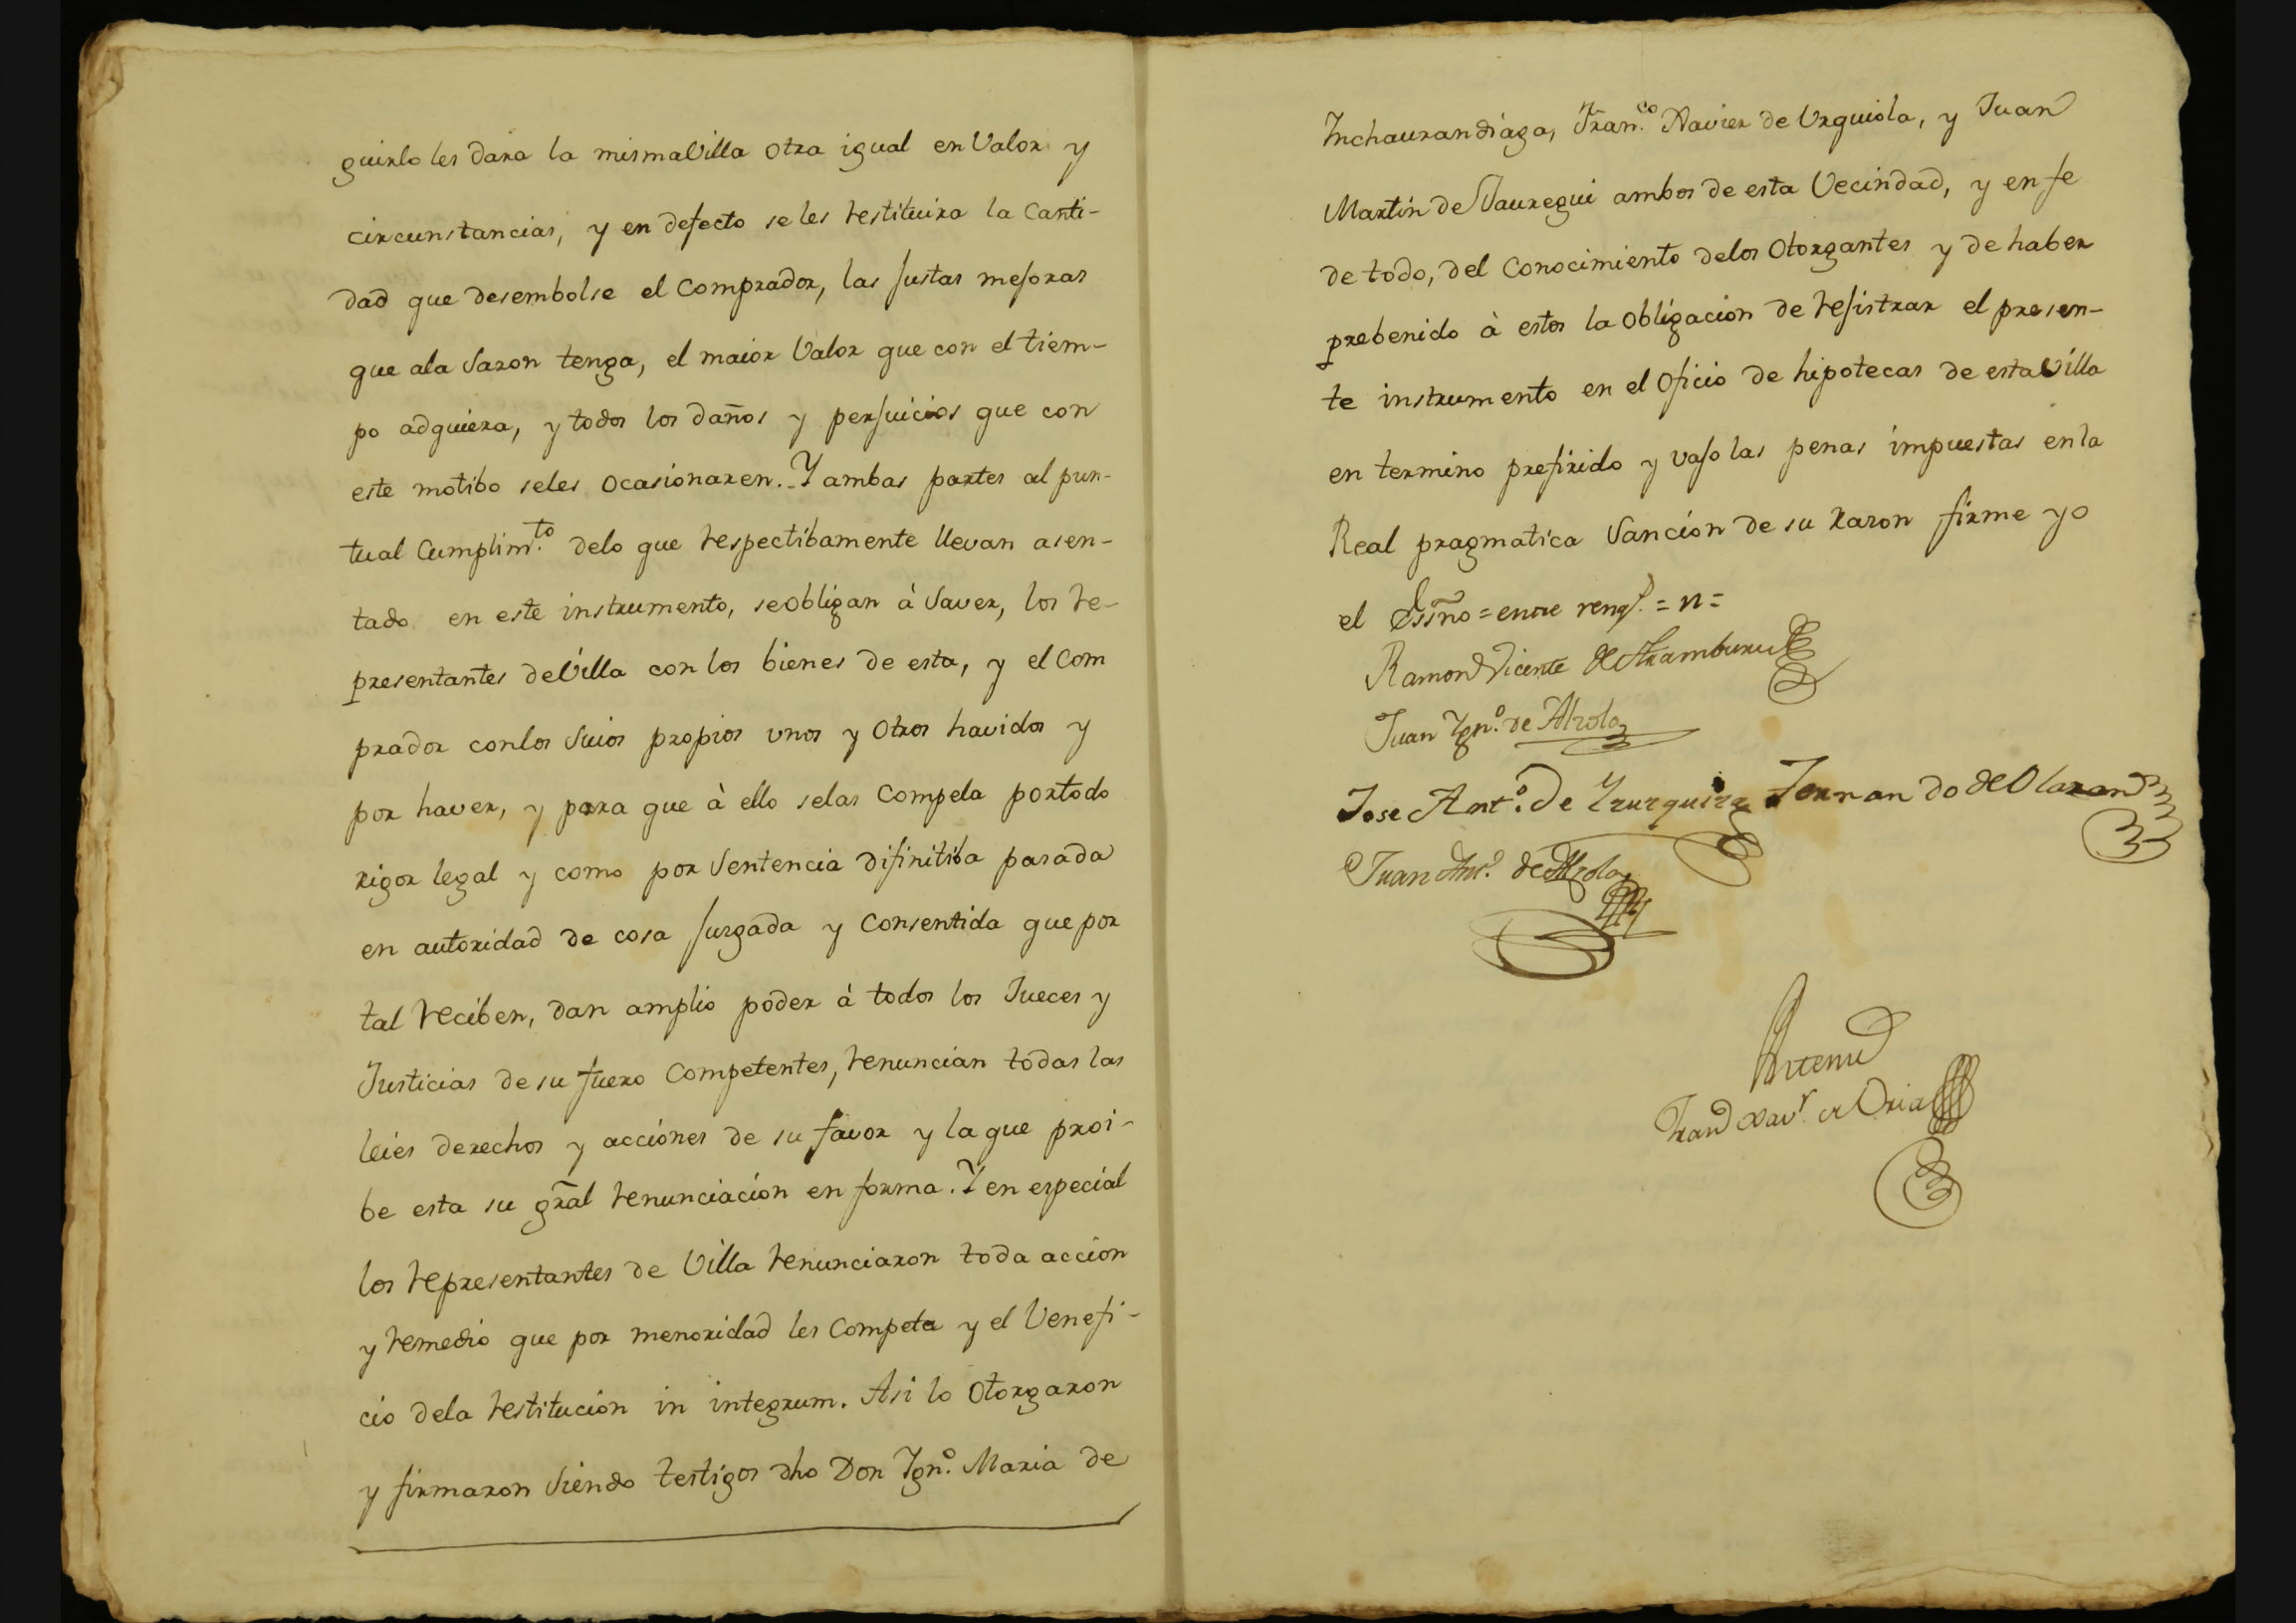 guirlo les dara la mismaVilla otra igual en Valor y
circunstancias, y en defecto se les restituira la Canti-
dad que desembolse el Comprador, las justas mejoras
que ala Sazon tenga, el maior Valor que con el tiem-
po adquiera, y todos los daños y perjuicios que con
este motibo seles ocasionaren. Y ambas partes al pun-
tual Cumplim.to delo que respectibamente llevan asen-
tado en este instrumento, se obligan à Saver, los re-
presentantes deVilla con los bienes de esta, y el Com
prador conlos Suios propios unos y otros havidos y
por haver, y para que à ello selas Compela portodo
rigor legal y como por Sentencia difinitiba pasada
en autoridad de cosa juzgada y Consentida que por
tal reciben, dan amplio poder à todos los Jueces y
Justicias de su fuero Competentes, renuncian todas las
leies derechos y acciones de su favor y la que proi-
be esta su gral renunciacion en forma. Y en especial
los representantes de Villa renunciaron toda accion
y remedio que por menoridad les Competa y el Venefi-
cio dela restitucion in integrum. Asi lo otorgaron
y firmaron Siendo testigos dho Don Ign.o Maria de
Inchaurandiaga, Fran.co Xavier de Urquiola, y Juan
Martin de Jauregui ambos de esta Vecindad, y en fe
de todo, del Conocimiento delos Otorgantes y de haber
prebenido à estos la obligacion de rejistrar el presen-
te instrumento en el oficio de hipotecas de estaVilla
en termino prefirido y vajo las penas impuestas enla
Real pragmatica Sancion de su razon firme yo
el Essno = entre reng.s = n =
Ramon Vicente de Aramburu
Juan Ign.o de Alzola
Jose Ant.o de Yzurquiza Fernando de Olazan
Juan Ant.o de Alzola
Antemi
Fran.co Xav.r de Oria